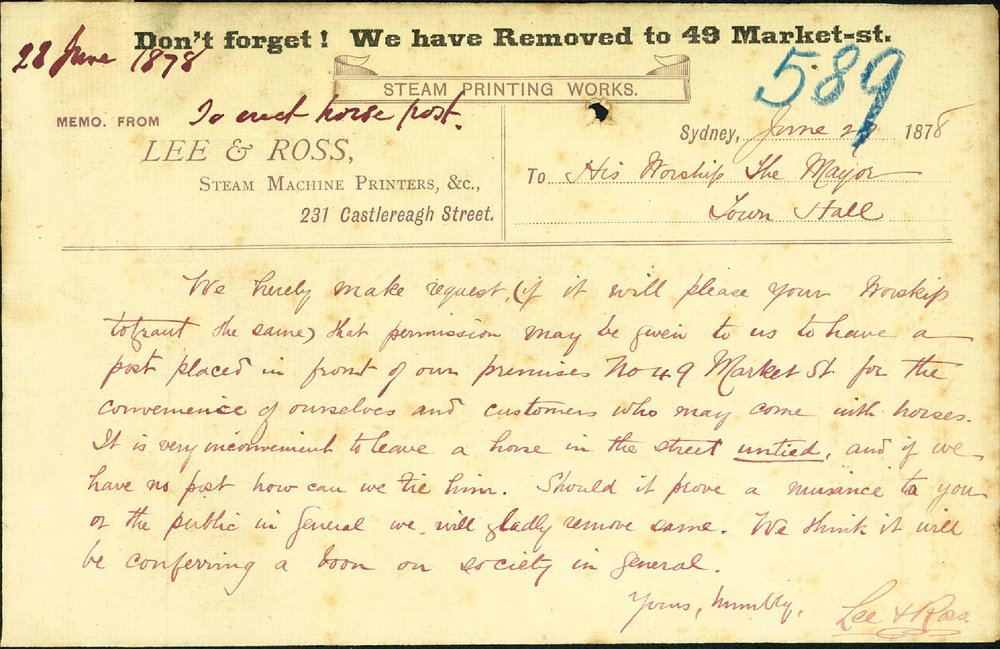 Don't forget! We have Removed to 49 Market-st.
28 June 1878
589
STEAM PRINTING WORKS.
To erect horse post.
MEMO. FROM
LEE & ROSS,
STEAM MACHINE PRINTERS, &c.,
231 Castlereagh Street.
Sydney, June 1878
To His Worship The Mayor
Town Hall
We hereby make request, (if it will please your Worship
to grant the same) that permission may be given to us to have a
post placed in front of our premises No 49 Market St for the
convenience of ourselves and customers who may come with horses.
It is very inconvenient to leave a horse in the street untied, and if we
have no post how can we tie him. Should it prove a nuisance to you
or the public in general we will gladly remove same. We think it will
be conferring a boon on society in general.
Yours, humbly,
Lee & Ross.